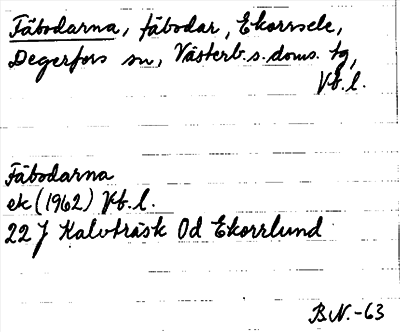 Fäbodarna, fäbodar, Ekorrsele,
Degerfors sn, Västerb. s. doms. tg,
Vb. l.
Fäbodarna
ek (1962) Vb. l.
22 J Kalvträsk 0d Ekorrlund
B.N.-63